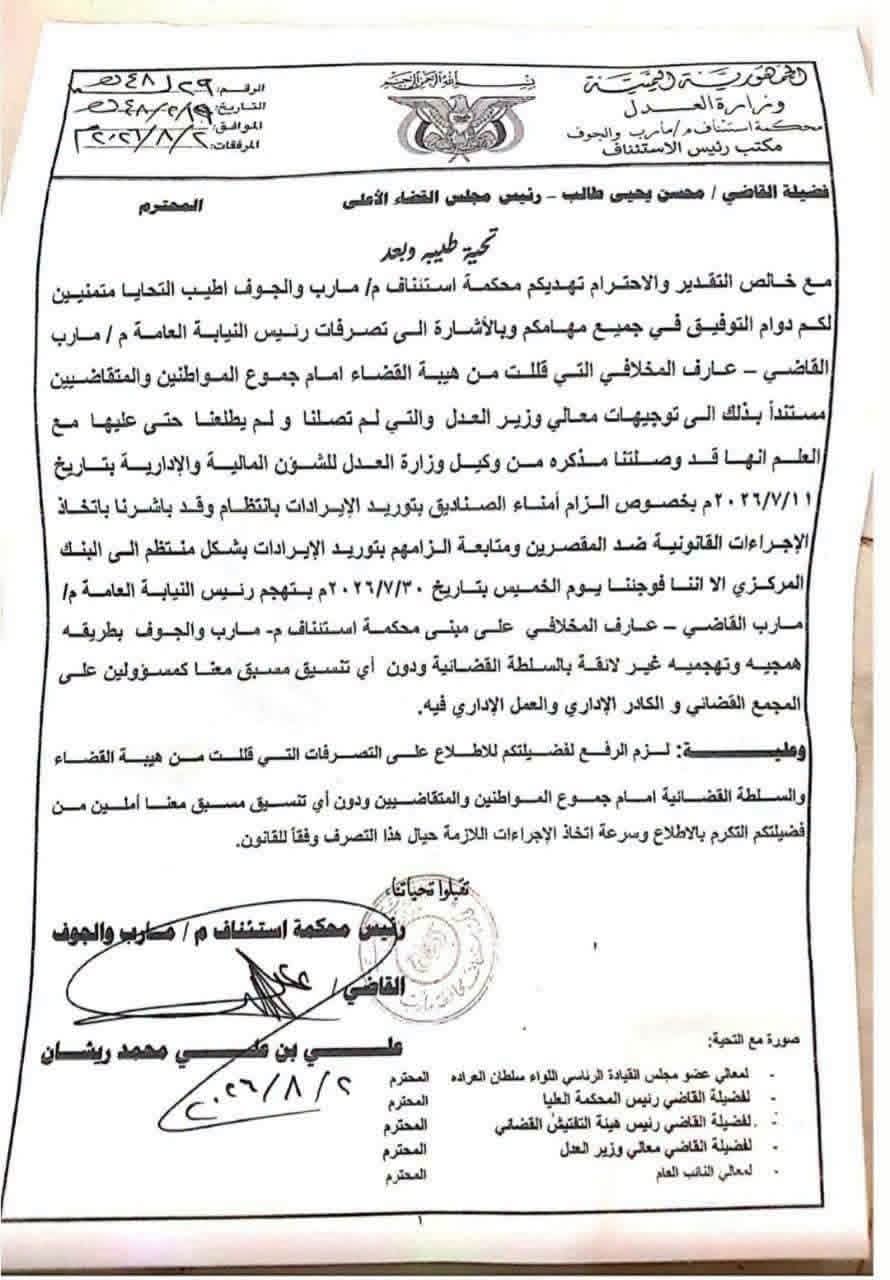 الجمهورية اليمنية
وزارة العدل
محكمة استئناف م/مأرب والجوف
مكتب رئيس الاستئناف
بسم الله الرحمن الرحيم
الرقم:
التاريخ:
الموافق: ٢٠٢٦/٨/٢م
المرفقات:
فضيلة القاضي / محسن يحيى طالب – رئيس مجلس القضاء الأعلى المحترم
تحية طيبه وبعد
مع خالص التقدير والاحترام تهديكم محكمة استئناف م/ مارب والجوف اطيب التحايا متمنيين
لكم دوام التوفيق في جميع مهامكم وبالأشارة الى تصرفات رئيس النيابة العامة م / مارب
القاضي – عارف المخلافي التي قللت من هيبة القضاء امام جموع المواطنين والمتقاضيين
مستنداً بذلك الى توجيهات معالي وزير العدل والتي لم تصلنا و لم يطلعنا حتى عليها مع
العلم انها قد وصلتنا مذكره من وكيل وزارة العدل للشؤن المالية والإدارية بتاريخ
٢٠٢٦/٧/١١م بخصوص الزام أمناء الصناديق بتوريد الإيرادات بانتظام وقد باشرنا باتخاذ
الإجراءات القانونية ضد المقصرين ومتابعة الزامهم بتوريد الإيرادات بشكل منتظم الى البنك
المركزي الا اننا فوجئنا يوم الخميس بتاريخ ٢٠٢٦/٧/٣٠م بتهجم رئيس النيابة العامة م/
مارب القاضي – عارف المخلافي على مبنى محكمة استئناف م- مارب والجوف بطريقه
همجيه وتهجميه غير لائقة بالسلطة القضائية ودون أي تنسيق مسبق معنا كمسؤولين على
المجمع القضائي و الكادر الإداري والعمل الإداري فيه.
وعليــــة: لزم الرفع لفضيلتكم للاطلاع على التصرفات التي قللت من هيبة القضاء
والسلطة القضائية امام جموع المواطنين والمتقاضيين ودون أي تنسيق مسبق معنا أملين من
فضيلتكم التكرم بالاطلاع وسرعة اتخاذ الإجراءات اللازمة حيال هذا التصرف وفقاً للقانون.
تقبلوا تحياتنا،
رئيس محكمة استئناف م / مارب والجوف
القاضي /
علي بن علي محمد ريشان
٢٠٢٦/٨/٢
صورة مع التحية:
- لمعالي عضو مجلس القيادة الرئاسي اللواء سلطان العراده المحترم
- لفضيلة القاضي رئيس المحكمة العليا المحترم
- لفضيلة القاضي رئيس هيئة التفتيش القضائي المحترم
- لفضيلة القاضي معالي وزير العدل المحترم
- لمعالي النائب العام المحترم
١